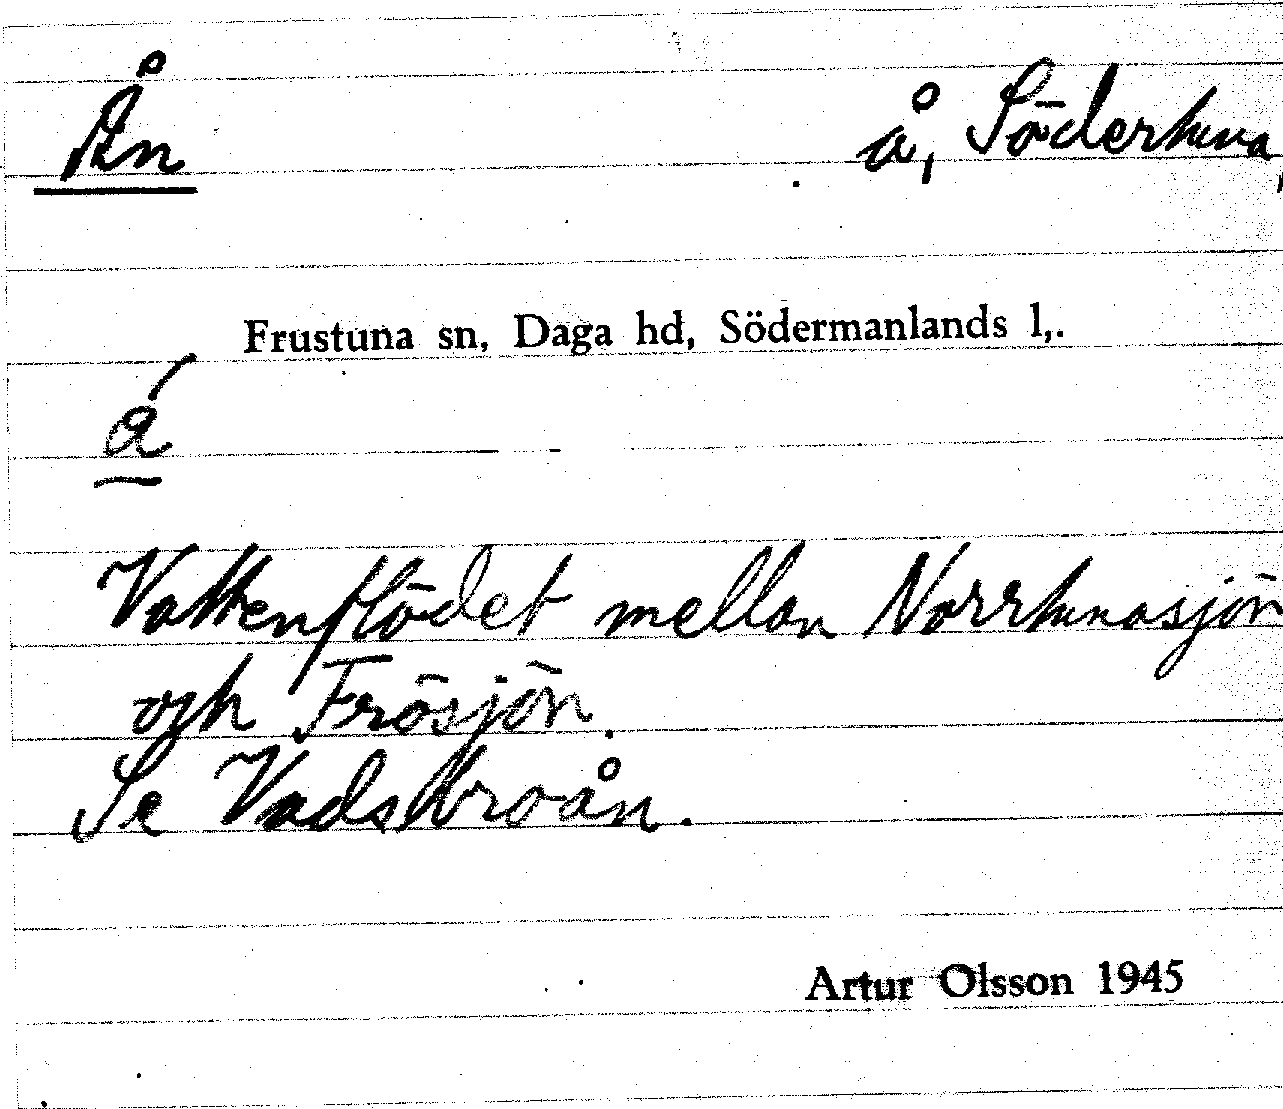 Ån
å, Södertuna,
Frustuna sn, Daga hd, Södermanlands l,.
á
Vattenflödet mellan Norrtunasjön
och Frösjön.
Se Vadsbroån.
Artur Olsson 1945